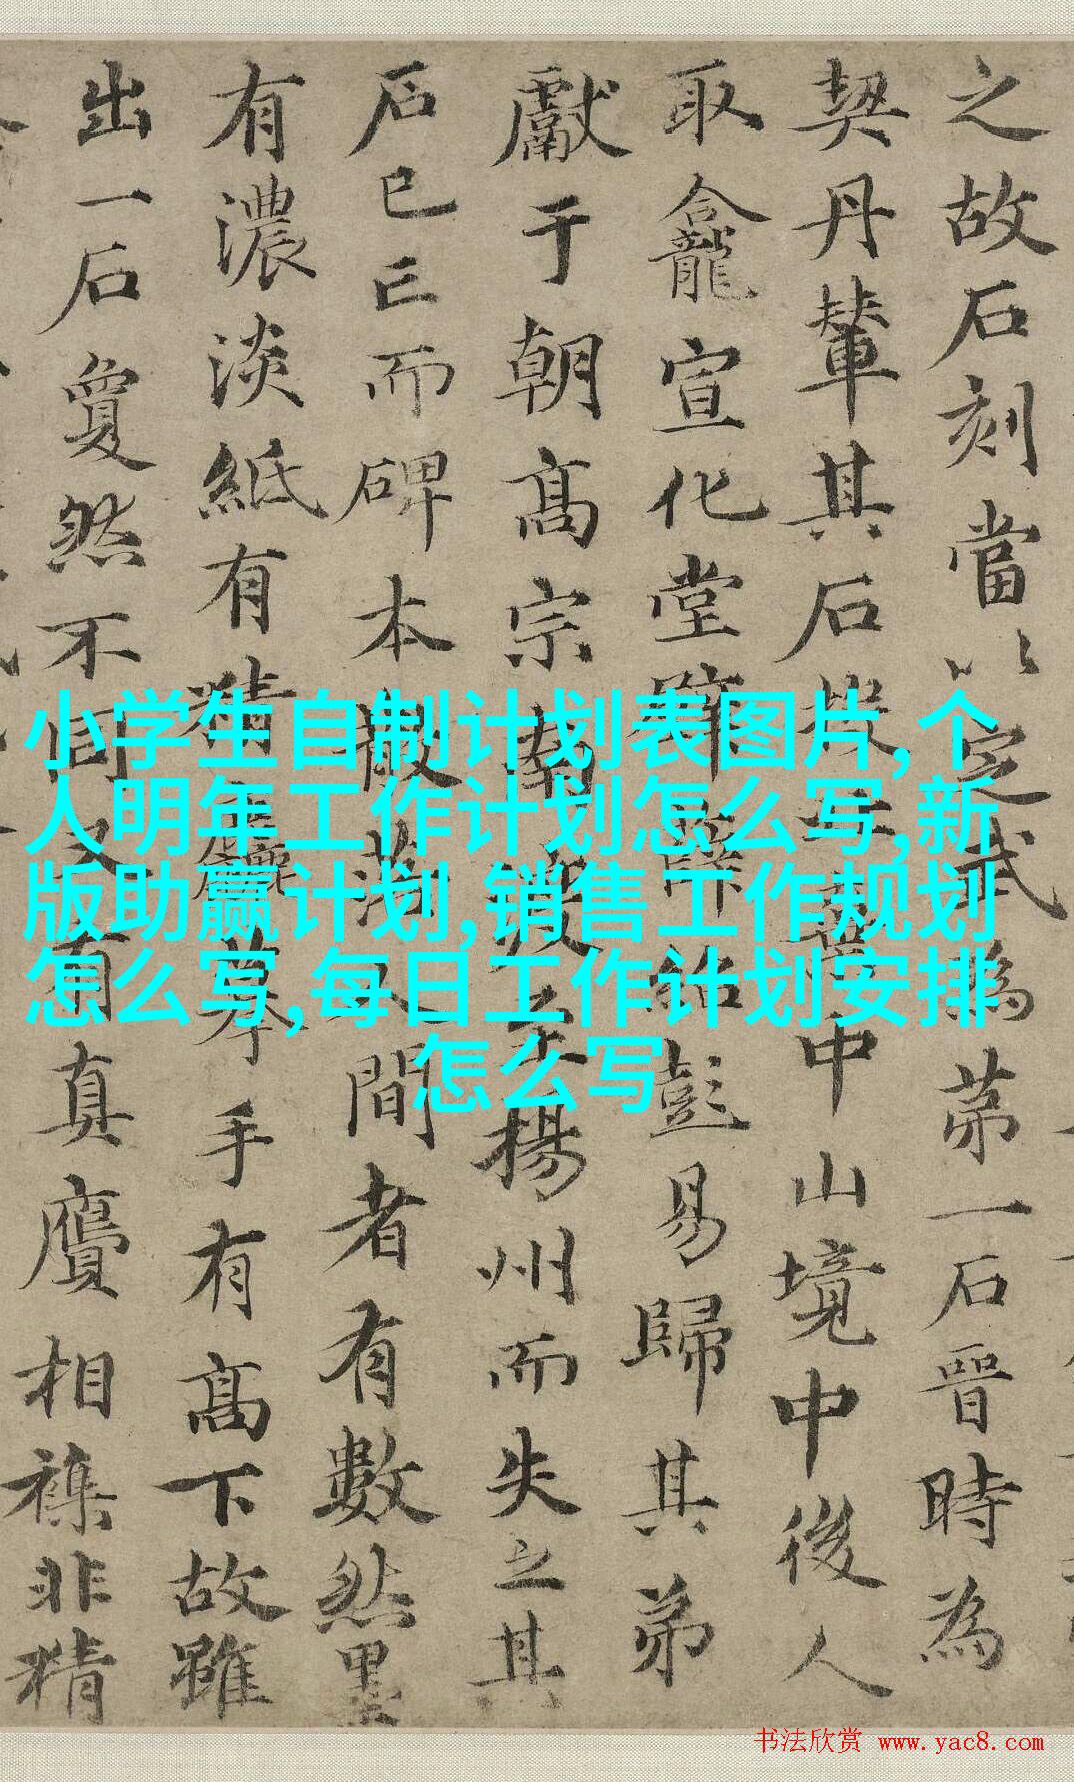 之故石刻當以定武為苐一石晉時為
契丹輦其石
中山境中後人
取龕宣化堂
彭易歸其弟
獻于朝髙宗
揚州而失之其
石已亡而碑本散落人間者有數然墨
有濃淡紙有精麤摹手有髙下故雖
出一石夐然不同又有真贋相襍非精
小学生自制计划表图片,个
人明年工作计划怎么写,新
版助赢计划,销售工作规划
怎么写,每日工作计划安排
怎么写
书法欣赏 www.yac8.com